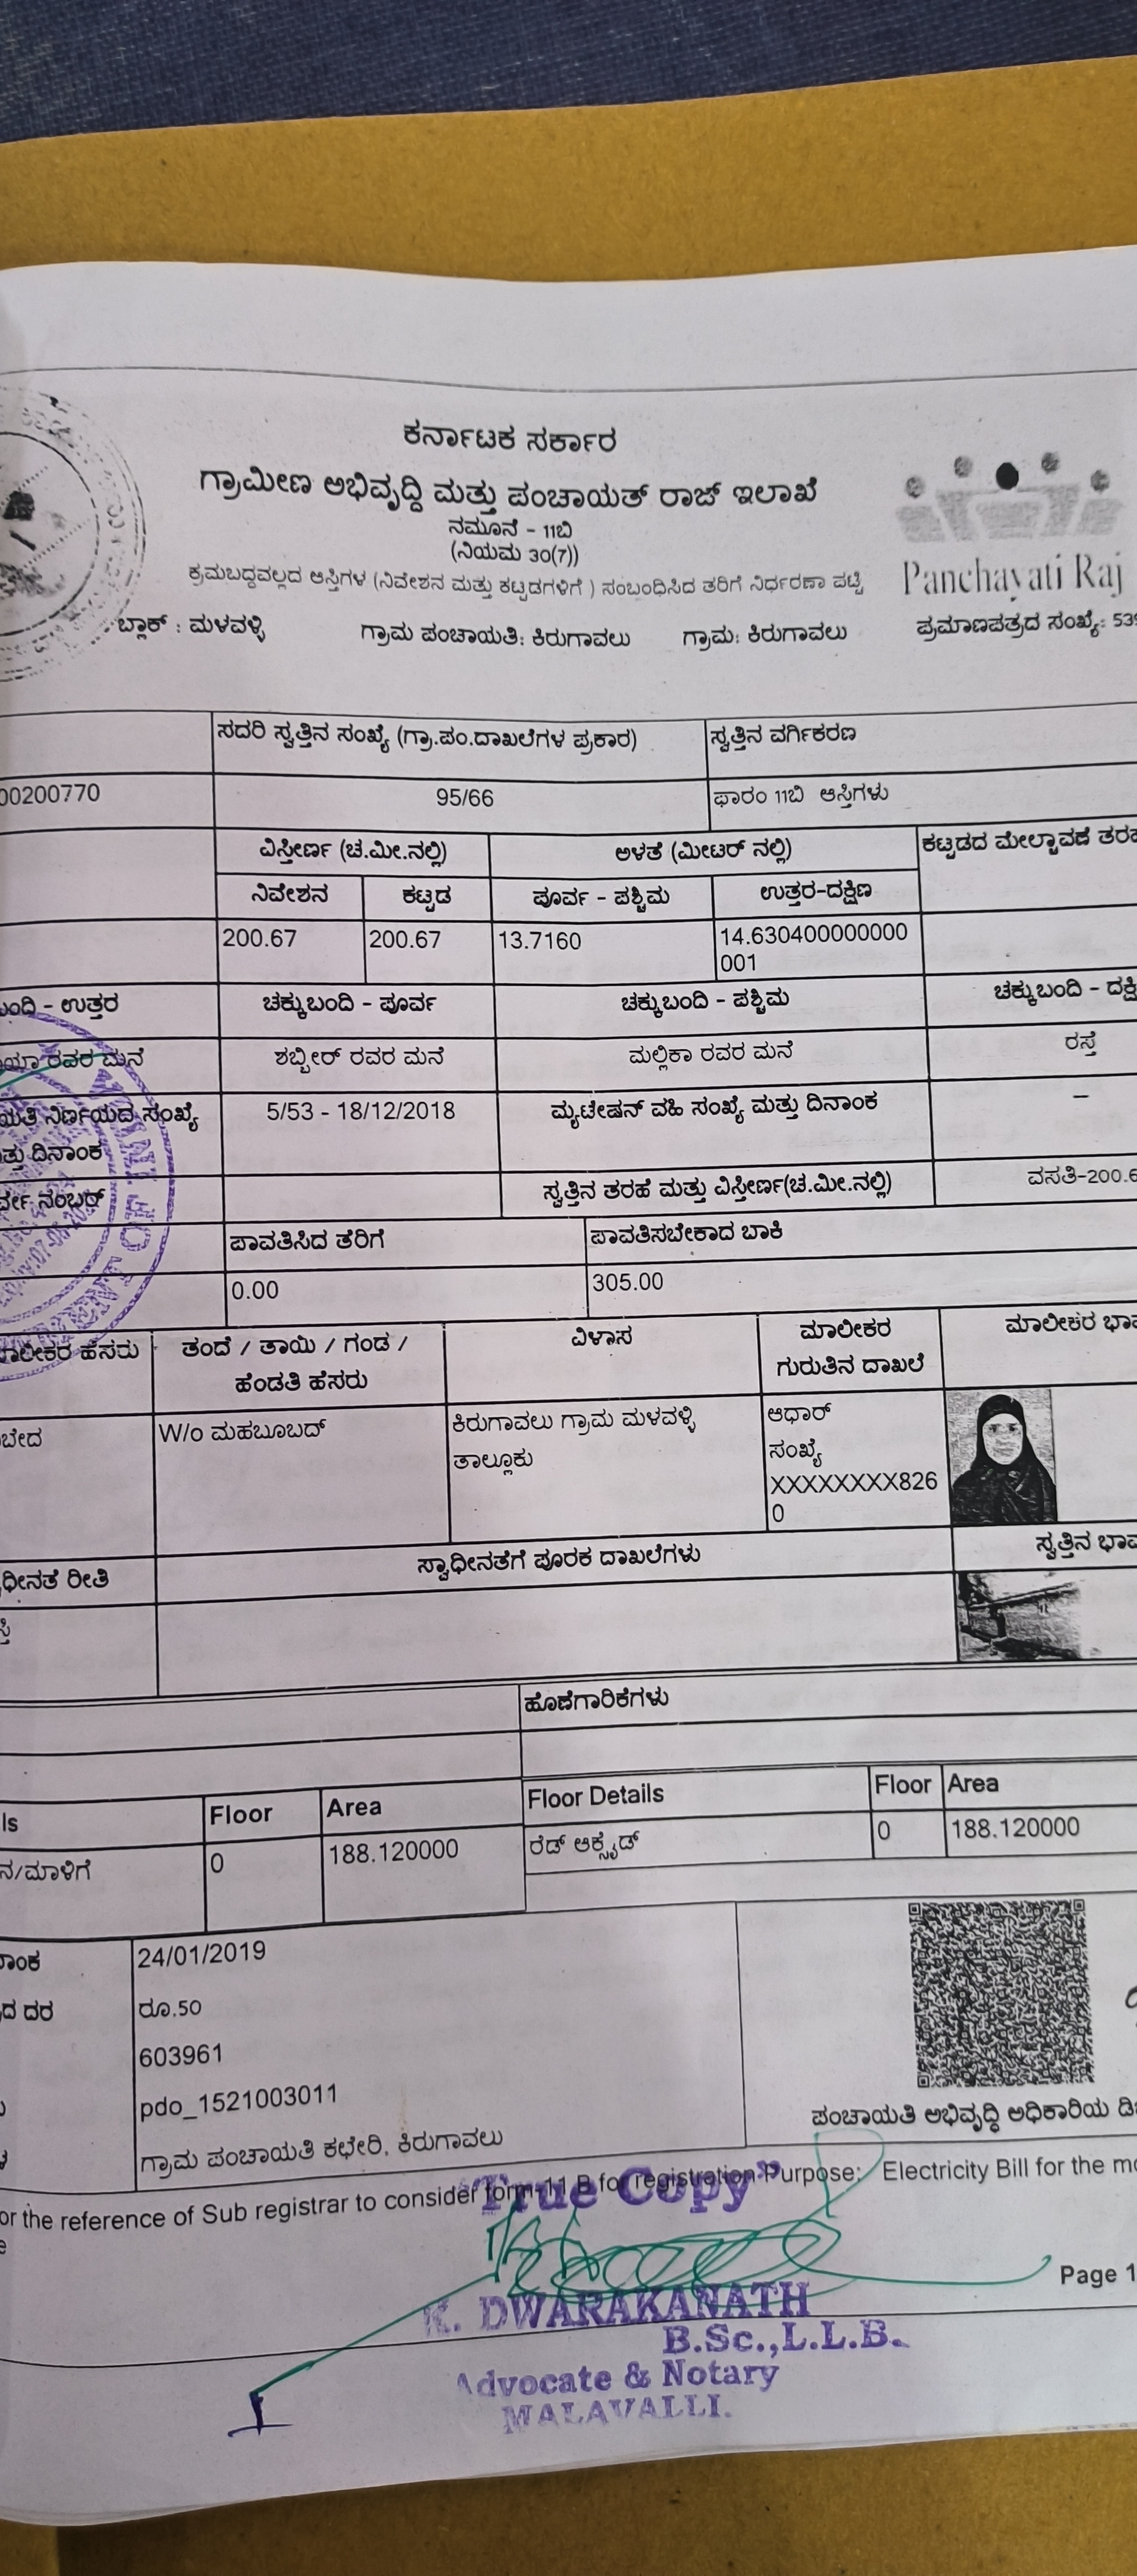 ಕರ್ನಾಟಕ ಸರ್ಕಾರ
ಗ್ರಾಮೀಣ ಅಭಿವೃದ್ಧಿ ಮತ್ತು ಪಂಚಾಯತ್ ರಾಜ್ ಇಲಾಖೆ
ನಮೂನೆ - 11ಬಿ
(ನಿಯಮ 30(7))
ಕ್ರಮಬದ್ಧವಲ್ಲದ ಆಸ್ತಿಗಳ (ನಿವೇಶನ ಮತ್ತು ಕಟ್ಟಡಗಳಿಗೆ ) ಸಂಬಂಧಿಸಿದ ತೆರಿಗೆ ನಿರ್ಧರಣಾ ಪಟ್ಟಿ
Panchayati Raj
ಬ್ಲಾಕ್ : ಮಳವಳ್ಳಿ ಗ್ರಾಮ ಪಂಚಾಯತಿ: ಕಿರುಗಾವಲು ಗ್ರಾಮ: ಕಿರುಗಾವಲು ಪ್ರಮಾಣಪತ್ರದ ಸಂಖ್ಯೆ: 539
ಸದರಿ ಸ್ವತ್ತಿನ ಸಂಖ್ಯೆ (ಗ್ರಾ.ಪಂ.ದಾಖಲೆಗಳ ಪ್ರಕಾರ) ಸ್ವತ್ತಿನ ವರ್ಗೀಕರಣ
00200770 95/66 ಫಾರಂ 11ಬಿ ಆಸ್ತಿಗಳು
ವಿಸ್ತೀರ್ಣ (ಚ.ಮೀ.ನಲ್ಲಿ) ಅಳತೆ (ಮೀಟರ್ ನಲ್ಲಿ) ಕಟ್ಟಡದ ಮೇಲ್ಛಾವಣಿ ತರಹ
ನಿವೇಶನ ಕಟ್ಟಡ ಪೂರ್ವ - ಪಶ್ಚಿಮ ಉತ್ತರ-ದಕ್ಷಿಣ
200.67 200.67 13.7160 14.630400000000
001
ಬಂದಿ - ಉತ್ತರ ಚಕ್ಕುಬಂದಿ - ಪೂರ್ವ ಚಕ್ಕುಬಂದಿ - ಪಶ್ಚಿಮ ಚಕ್ಕುಬಂದಿ - ದಕ್ಷಿ
ರವರ ಮನೆ ಶಬ್ಬೀರ್ ರವರ ಮನೆ ಮಲ್ಲಿಕಾ ರವರ ಮನೆ ರಸ್ತೆ
ಯತಿ ನಿರ್ಣಯದ ಸಂಖ್ಯೆ 5/53 - 18/12/2018 ಮ್ಯುಟೇಷನ್ ವಹಿ ಸಂಖ್ಯೆ ಮತ್ತು ದಿನಾಂಕ –
ತ್ತು ದಿನಾಂಕ
ರ್ವೇ ನಂಬರ್ ಸ್ವತ್ತಿನ ತರಹೆ ಮತ್ತು ವಿಸ್ತೀರ್ಣ(ಚ.ಮೀ.ನಲ್ಲಿ) ವಸತಿ-200.6
ಪಾವತಿಸಿದ ತೆರಿಗೆ ಪಾವತಿಸಬೇಕಾದ ಬಾಕಿ
0.00 305.00
ಾಲೀಕರ ಹೆಸರು ತಂದೆ / ತಾಯಿ / ಗಂಡ / ವಿಳಾಸ ಮಾಲೀಕರ ಮಾಲೀಕರ ಭಾವ
ಹೆಂಡತಿ ಹೆಸರು ಗುರುತಿನ ದಾಖಲೆ
ಬೇದ W/o ಮಹಬೂಬದ್ ಕಿರುಗಾವಲು ಗ್ರಾಮ ಮಳವಳ್ಳಿ ಆಧಾರ್
ತಾಲ್ಲೂಕು ಸಂಖ್ಯೆ
XXXXXXXX826
0
ಧೀನತೆ ರೀತಿ ಸ್ವಾಧೀನತೆಗೆ ಪೂರಕ ದಾಖಲೆಗಳು ಸ್ವತ್ತಿನ ಭಾವ
ಸ್ತಿ
ಹೊಣೆಗಾರಿಕೆಗಳು
ls Floor Area Floor Details Floor Area
ನ/ಮಾಳಿಗೆ 0 188.120000 ರೆಡ್ ಆಕ್ಸೈಡ್ 0 188.120000
ನಾಂಕ 24/01/2019
ದ ದರ ರೂ.50
603961
pdo_1521003011
ಗ್ರಾಮ ಪಂಚಾಯತಿ ಕಛೇರಿ, ಕಿರುಗಾವಲು
ಪಂಚಾಯತಿ ಅಭಿವೃದ್ಧಿ ಅಧಿಕಾರಿಯ ಡಿ
or the reference of Sub registrar to consider form-11 B for registration Purpose: Electricity Bill for the mo
e
"True Copy"
Page 1
K. DWARAKANATH
B.Sc.,L.L.B.
Advocate & Notary
MALAVALLI.